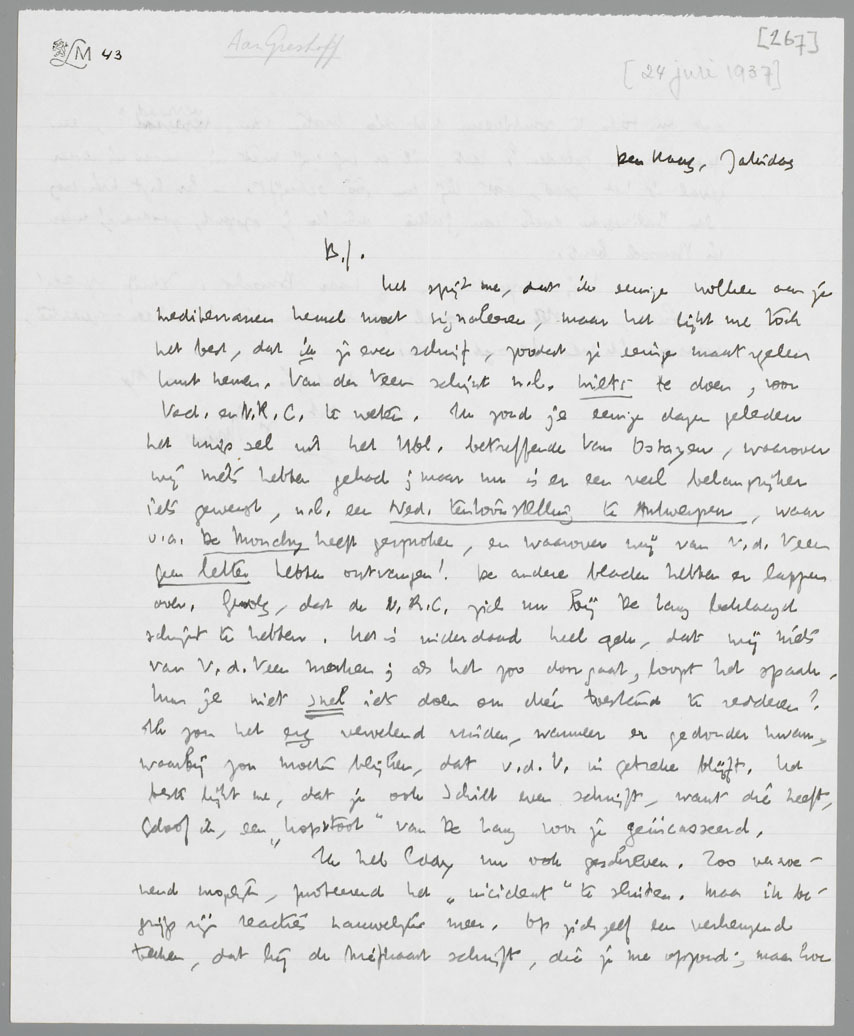 LM 43
Aan Greshoff
[267]
[24 juli 1937]
Den Haag, Zaterdag
B.J.
Het spijt me, dat ik eenige wolken aan je
mediterranen hemel moet signaleeren, maar het lijkt me toch
het best, dat ik je even schrijf zoodat je eenige maatregelen
kunt nemen. Van der Veen schijnt n.l. niets te doen, voor
Vad. en N.R.C. te weten. Ik zond je eenige dagen geleden
het knipsel uit het Hbl. betreffende Van Ostayen, waarover
wij niets hebben gehad; maar nu is er een veel belangrijker
iets geweest, n.l. een Ned. tentoonstelling te Antwerpen, waar
v.a. De Monchy heeft gesproken, en waarover wij van v.d. Veen
geen letter hebben ontvangen! De andere bladen hebben er lappen
over. Gevolg, dat de N.R.C. zich nu bij De Lang beklaagd
schijnt te hebben. Het is inderdaad heel gek, dat wij niets
van v.d. Veen merken; als het zoo doorgaat, loopt het spaak.
Kun je niet snel iets doen om dien toestand te redderen?
Ik zou het erg vervelend vinden, wanneer er gedonder kwam,
waarbij zou moeten blijken, dat v.d.V. in gebreke blijft. Het
beste lijkt me, dat je ook Schilt even schrijft, want die heeft,
geloof ik, een „kopstoot" van De Lang voor je geïncasseerd.
Ik heb Coday nu ook geschreven. Zoo verzoe-
nend mogelijk, probeerend het „incident" te sluiten. Maar ik be-
grijp zijn reacties nauwelijks meer. Op zichzelf een verheugend
teeken, dat hij de briefkaart schrijft, die je me opzond; maar hoe